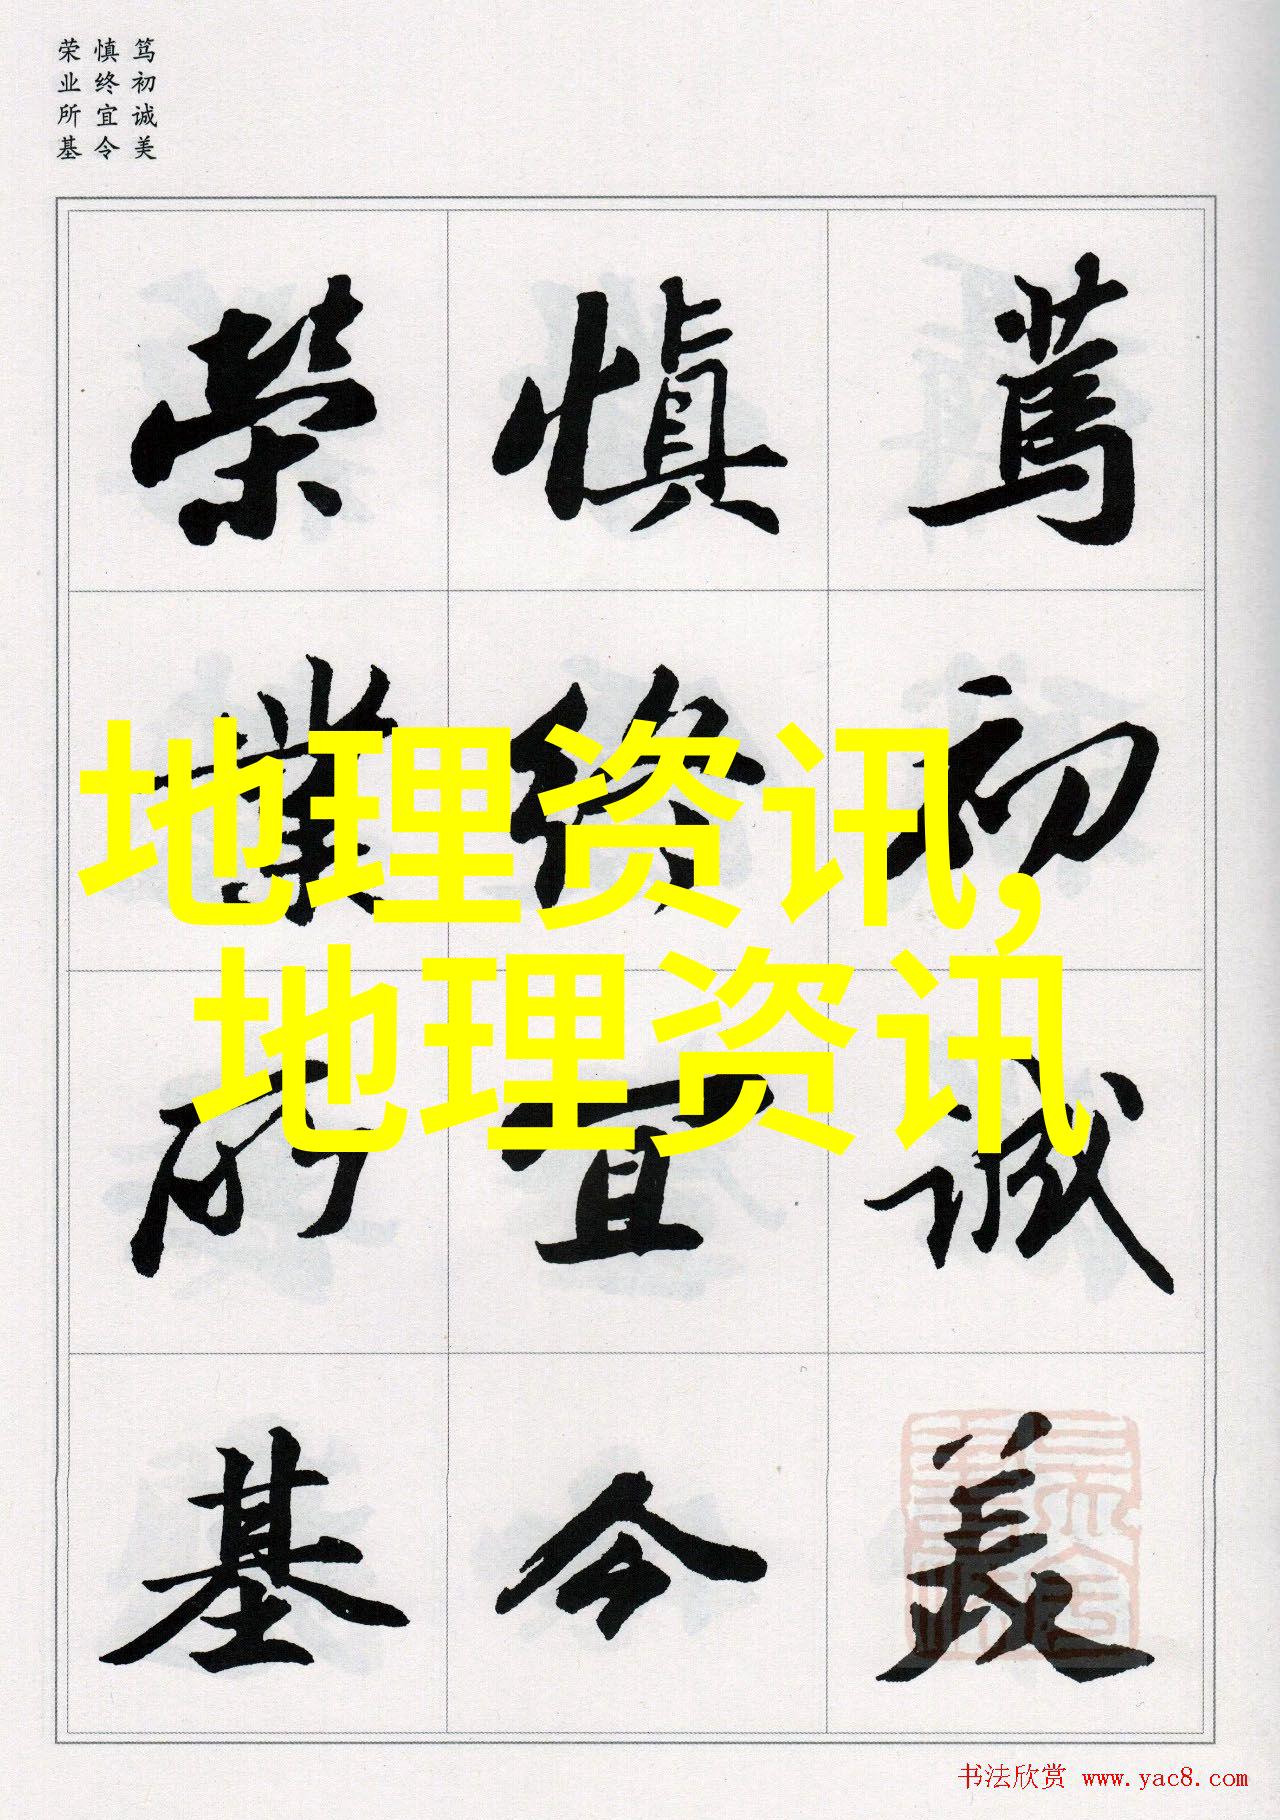 笃初诚美
慎终宜令
荣业所基
篤初誠美
慎終宜令
榮業所基
地理资讯,
地理资讯
书法欣赏 www.yac8.com